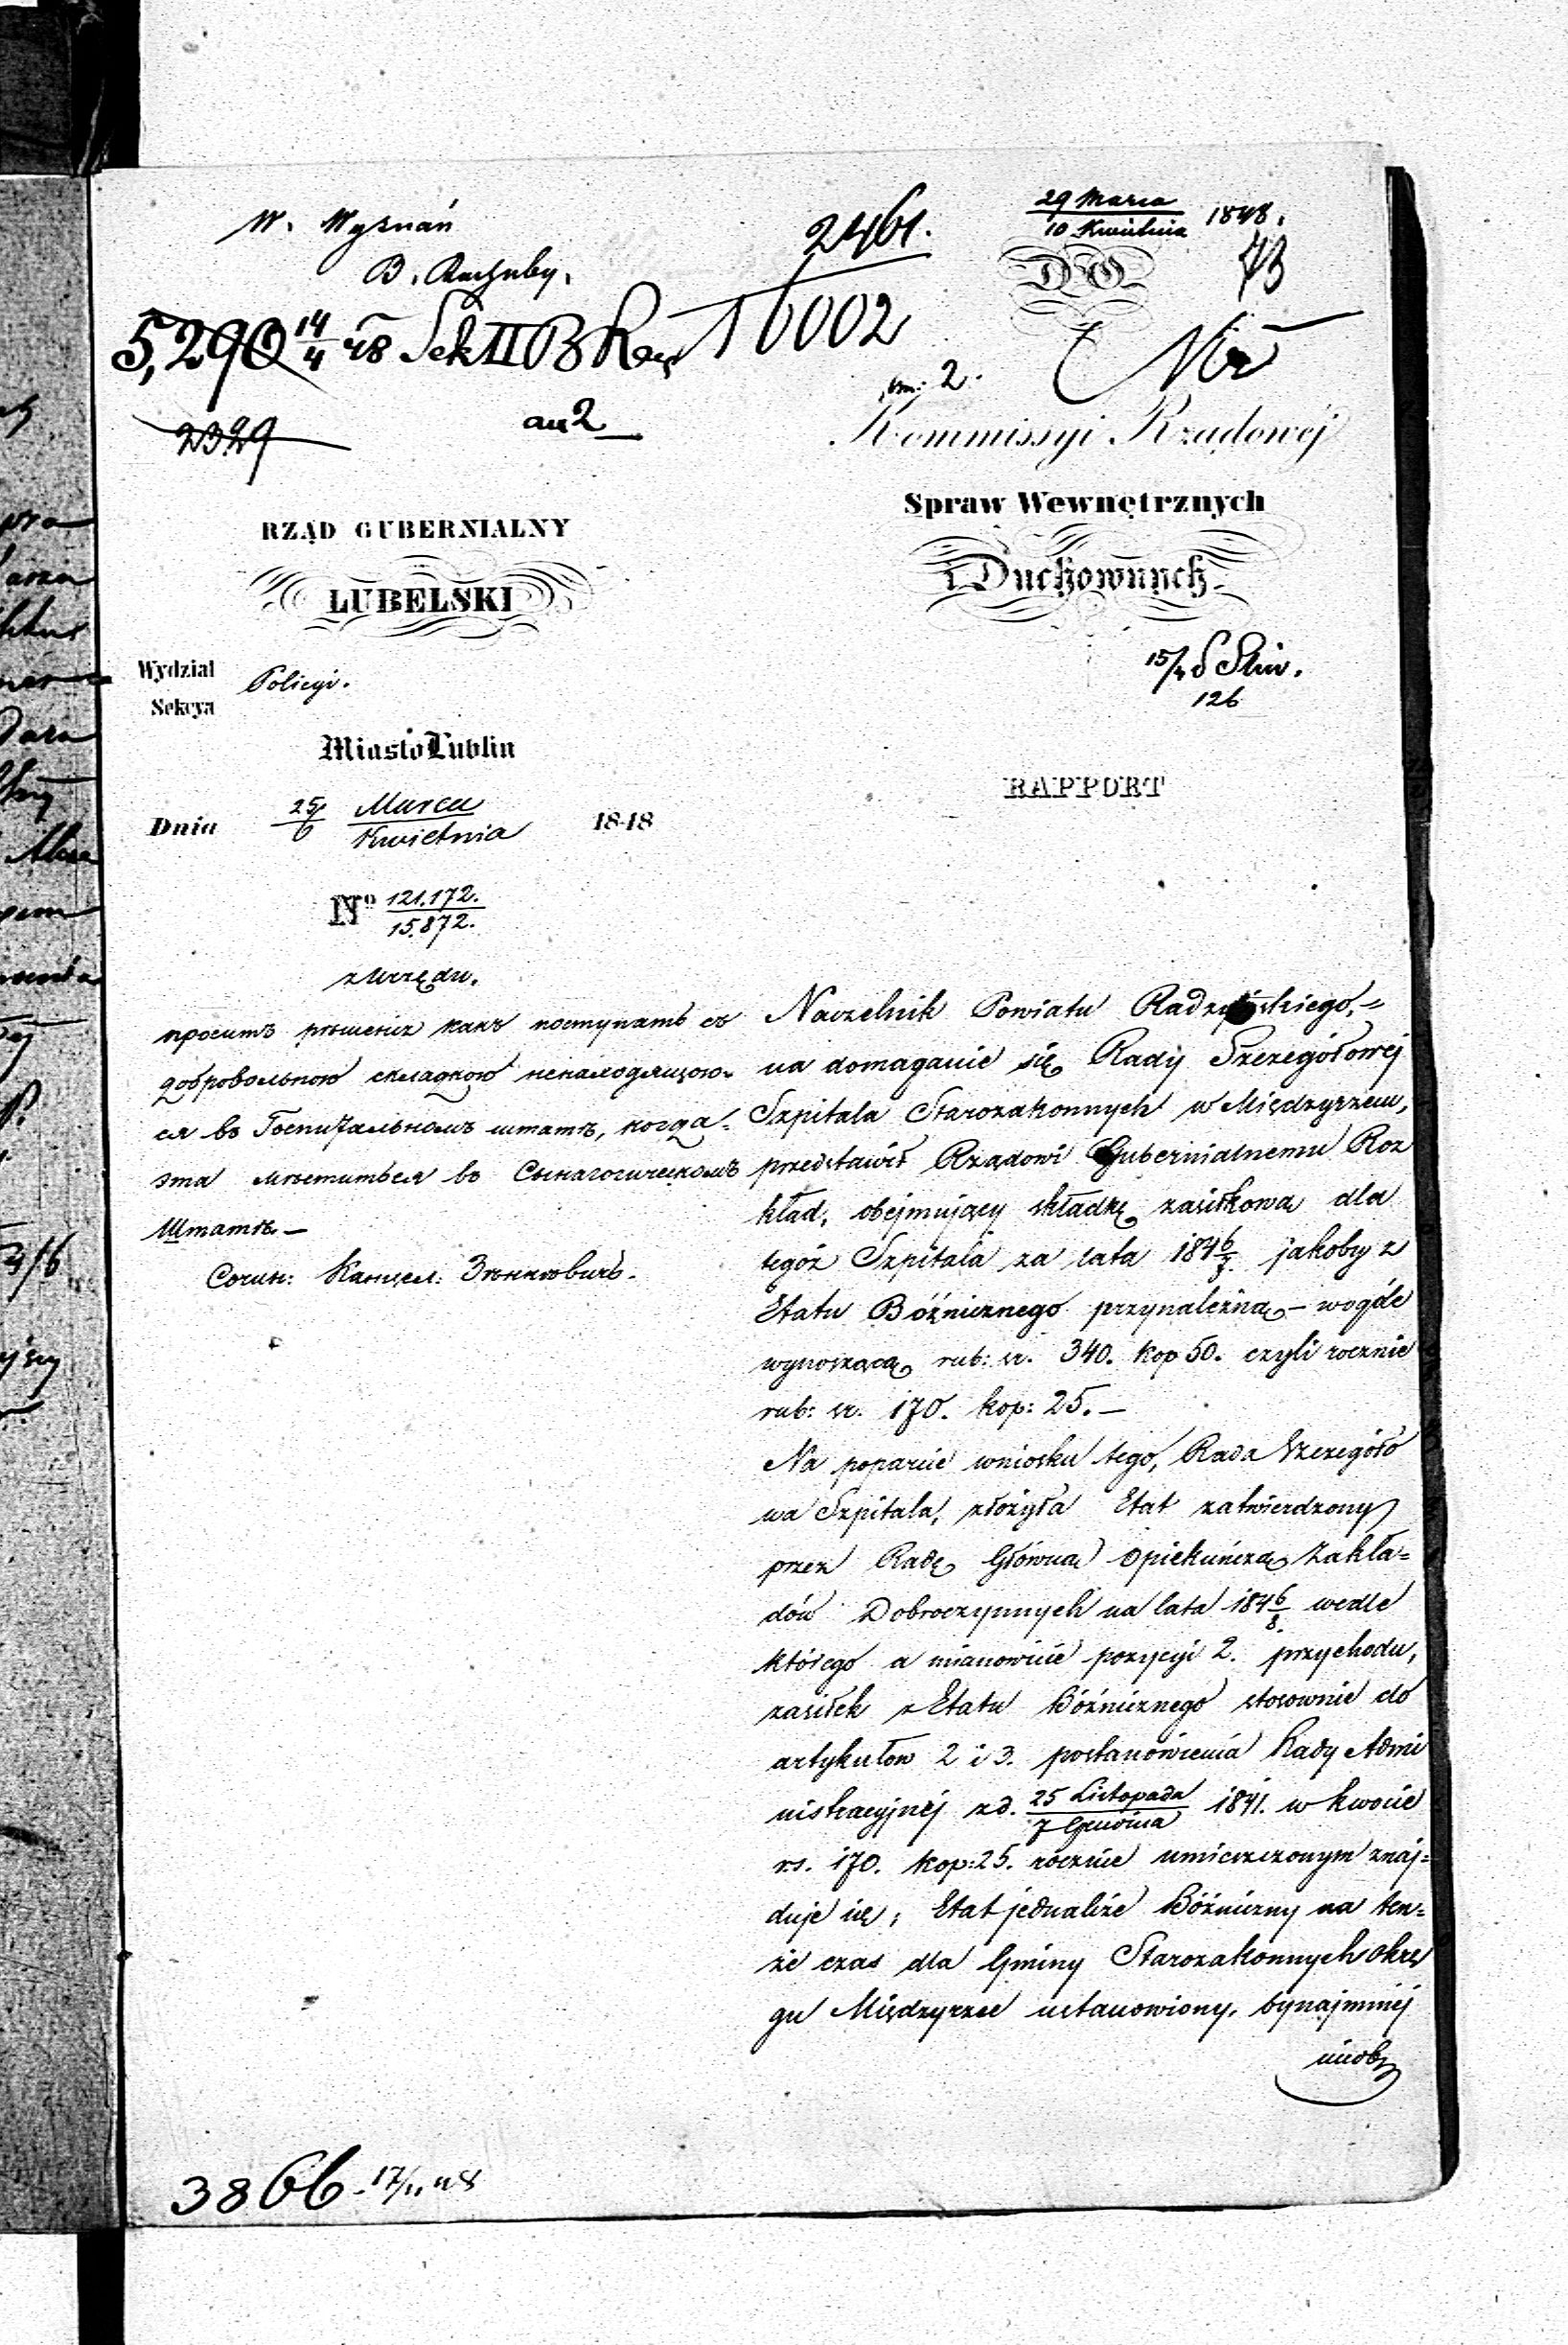 W. Wyznań
B. Rachuby.
2461.
16002
29 Marca
10 Kwietnia 1848.
73
5,290 14/4 48 Sek II B
2329
an 2
DO
2.
Kommissyi Rządowéj
Spraw Wewnętrznych
i Duchownych.
15/4
126
RZĄD GUBERNIALNY
LUBELSKI
Wydział Policyi.
Sekcya
Miasto Lublin
Dnia 25/6 Marca/Kwietnia 1848
No 121.172.
15.872.
z Urzędu.
RAPPORT
проситъ рѣшенія какъ поступать съ
добровольною складкою ненаходящею-
ся въ Госпитальномъ штатѣ, когда
эта мѣститься въ Сынагогическомъ
Штатѣ.—
Сочин: Канцел:
Naczelnik Powiatu Radzyńskiego,=
na domaganie się Rady Szczegółowej
Szpitala Starozakonnych w Międzyrzecu,
przedstawił Rządowi Gubernialnemu Roz
kład, obejmujący składkę zasiłkową dla
tegóż Szpitala za lata 1846/7. jakoby z
Etatu Bóźnicznego przynależną — wogóle
wynoszącą rub: sr. 340. kop 50. czyli rocznie
rub: sr. 170. kop: 25.—
Na poparcie wniosku tego, Rada Szczegóło
wa Szpitala, złożyła Etat zatwierdzony
przez Radę Główną Opiekuńczą Zakła=
dów Dobroczynnych na lata 1846/8. wedle
którego a mianowicie pozycyi 2. przychodu,
zasiłek z Etatu Bóźnicznego stosownie do
artykułów 2 i 3. postanowienia Rady Admi
nistracyjnéj z d. 25 Listopada/7 Grudnia 1841. w kwocie
rs. 170. kop: 25. rocznie umieszczonym znaj=
duje się; Etat jednakże Bóźniczny na ten=
że czas dla Gminy Starozakonnych okrę
gu Międzyrzec ustanowiony, bynajmniej
nieob
3866 17/11 48